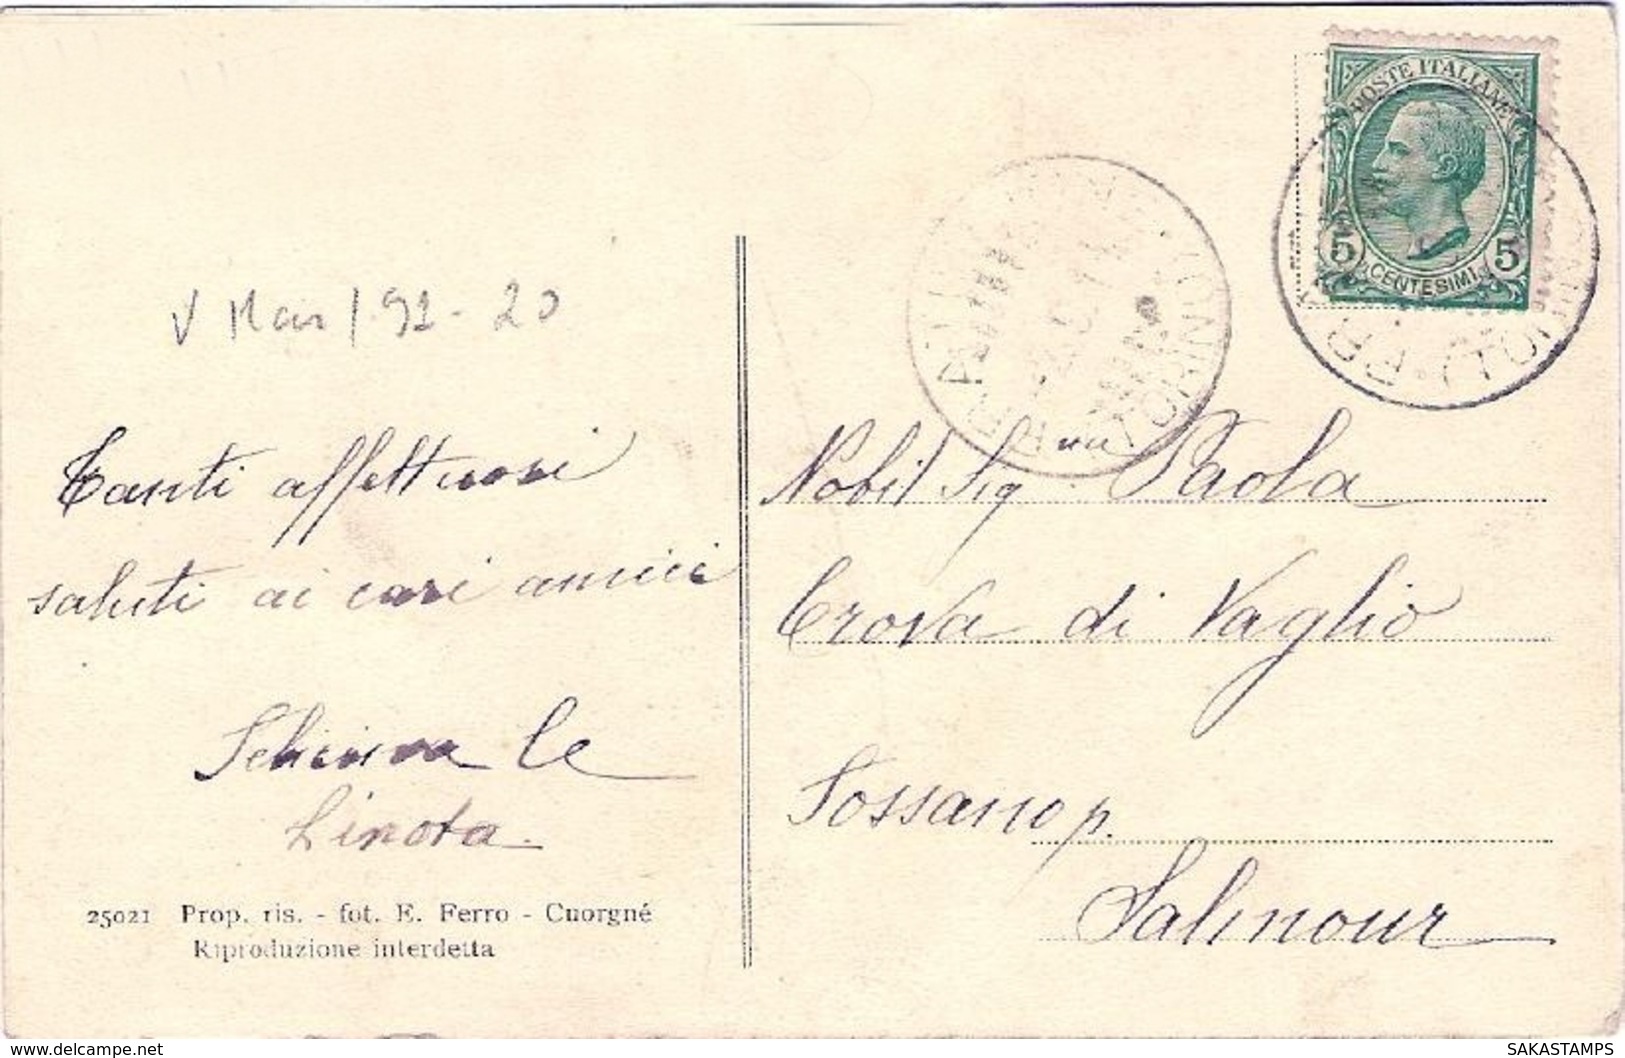 POSTE ITALIANE
5 CENTESIMI 5
TORINO
Tanti affettuosi
saluti ai cari amici
Linota
25021 Prop. ris. - fot. E. Ferro - Cuorgné
Riproduzione interdetta
Nobil Sig.na Paola
Crova di Vaglio
Fossano p.
Salmour
www.delcampe.net
SAKASTAMPS